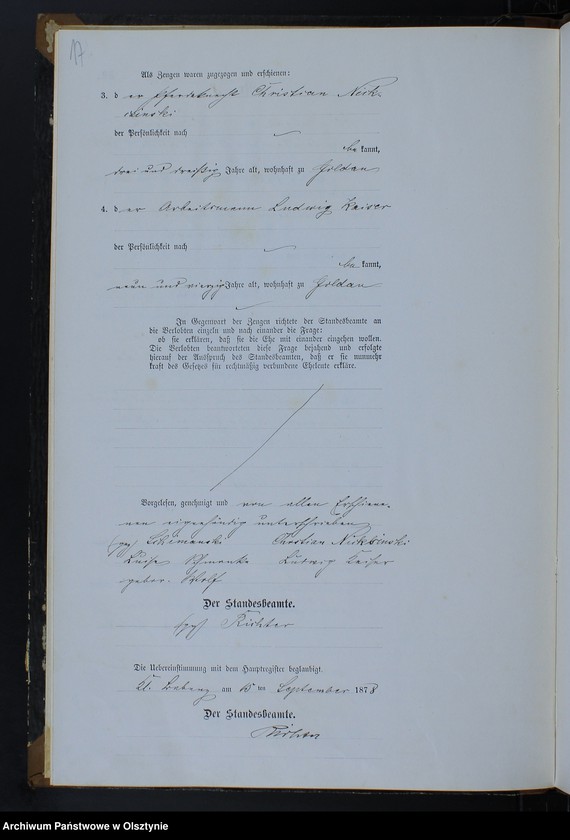 17
Als Zeugen waren zugezogen und erschienen:
3. der Pferdeknecht Christian Nick-
sinski
der Persönlichkeit nach
be kannt,
drei und dreißig Jahre alt, wohnhaft zu Goldau
4. der Arbeitsmann Ludwig Kaiser
der Persönlichkeit nach
be kannt,
neun und vierzig Jahre alt, wohnhaft zu Goldau
In Gegenwart der Zeugen richtete der Standesbeamte an
die Verlobten einzeln und nach einander die Frage:
ob sie erklären, daß sie die Ehe mit einander eingehen wollen.
Die Verlobten beantworteten diese Frage bejahend und erfolgte
hierauf der Ausspruch des Standesbeamten, daß er sie nunmehr
kraft des Gesetzes für rechtmäßig verbundene Eheleute erkläre.
Vorgelesen, genehmigt und von allen Erschiene-
nen eigenhändig unterschrieben
Christian Nicksinski
Luise Ludwig Kaiser
gebor. Wolf
Der Standesbeamte.
Richter
Die Uebereinstimmung mit dem Hauptregister beglaubigt.
am 15 ten September 1878
Der Standesbeamte.
Richter
Archiwum Państwowe w Olsztynie